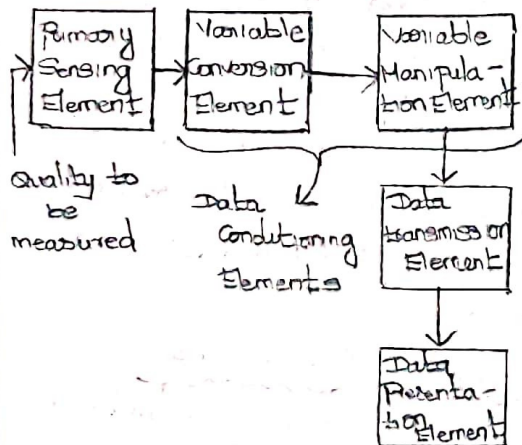 Primary
Sensing
Element
Variable
Conversion
Element
Variable
Manipula-
tion Element
Quality to
be
measured
Data
Conditioning
Elements
Data
transmission
Element
Data
Presenta-
tion Element